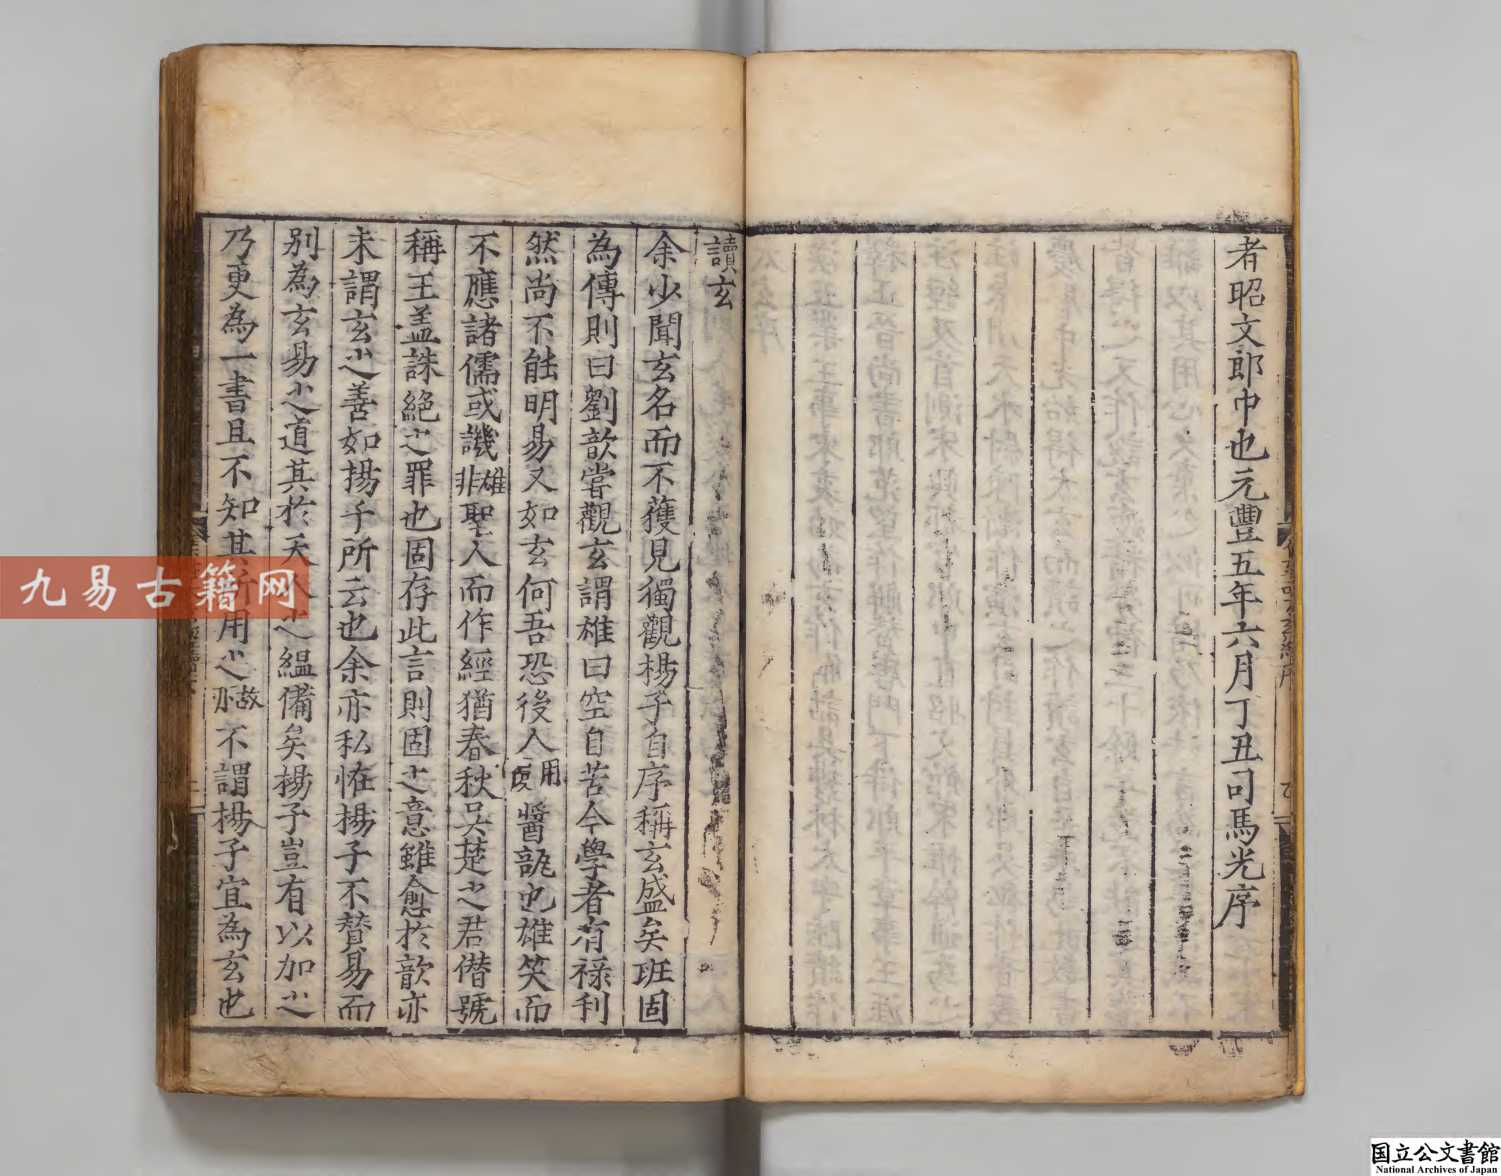 者昭文郎中也元豐五年六月丁丑司馬光序
讀玄
余少聞玄名而不獲見獨觀楊子自序稱玄盛矣班固
為傳則曰劉歆嘗觀玄謂雄曰空自苦今學者有祿利
然尚不能明易又如玄何吾恐後人用覆醬瓿也雄笑而
不應諸儒或譏雄非聖人而作經猶春秋吳楚之君僭號
稱王盖誅絕之罪也固存此言則固之意雖愈於歆亦
未謂玄之善如揚子所云也余亦私怪揚子不贊易而
別為玄易之道其於天人之縕備矣揚子豈有以加之
乃更為一書且不知其所用之故亦不謂揚子宜為玄也
九易古籍网
国立公文書館
National Archives of Japan